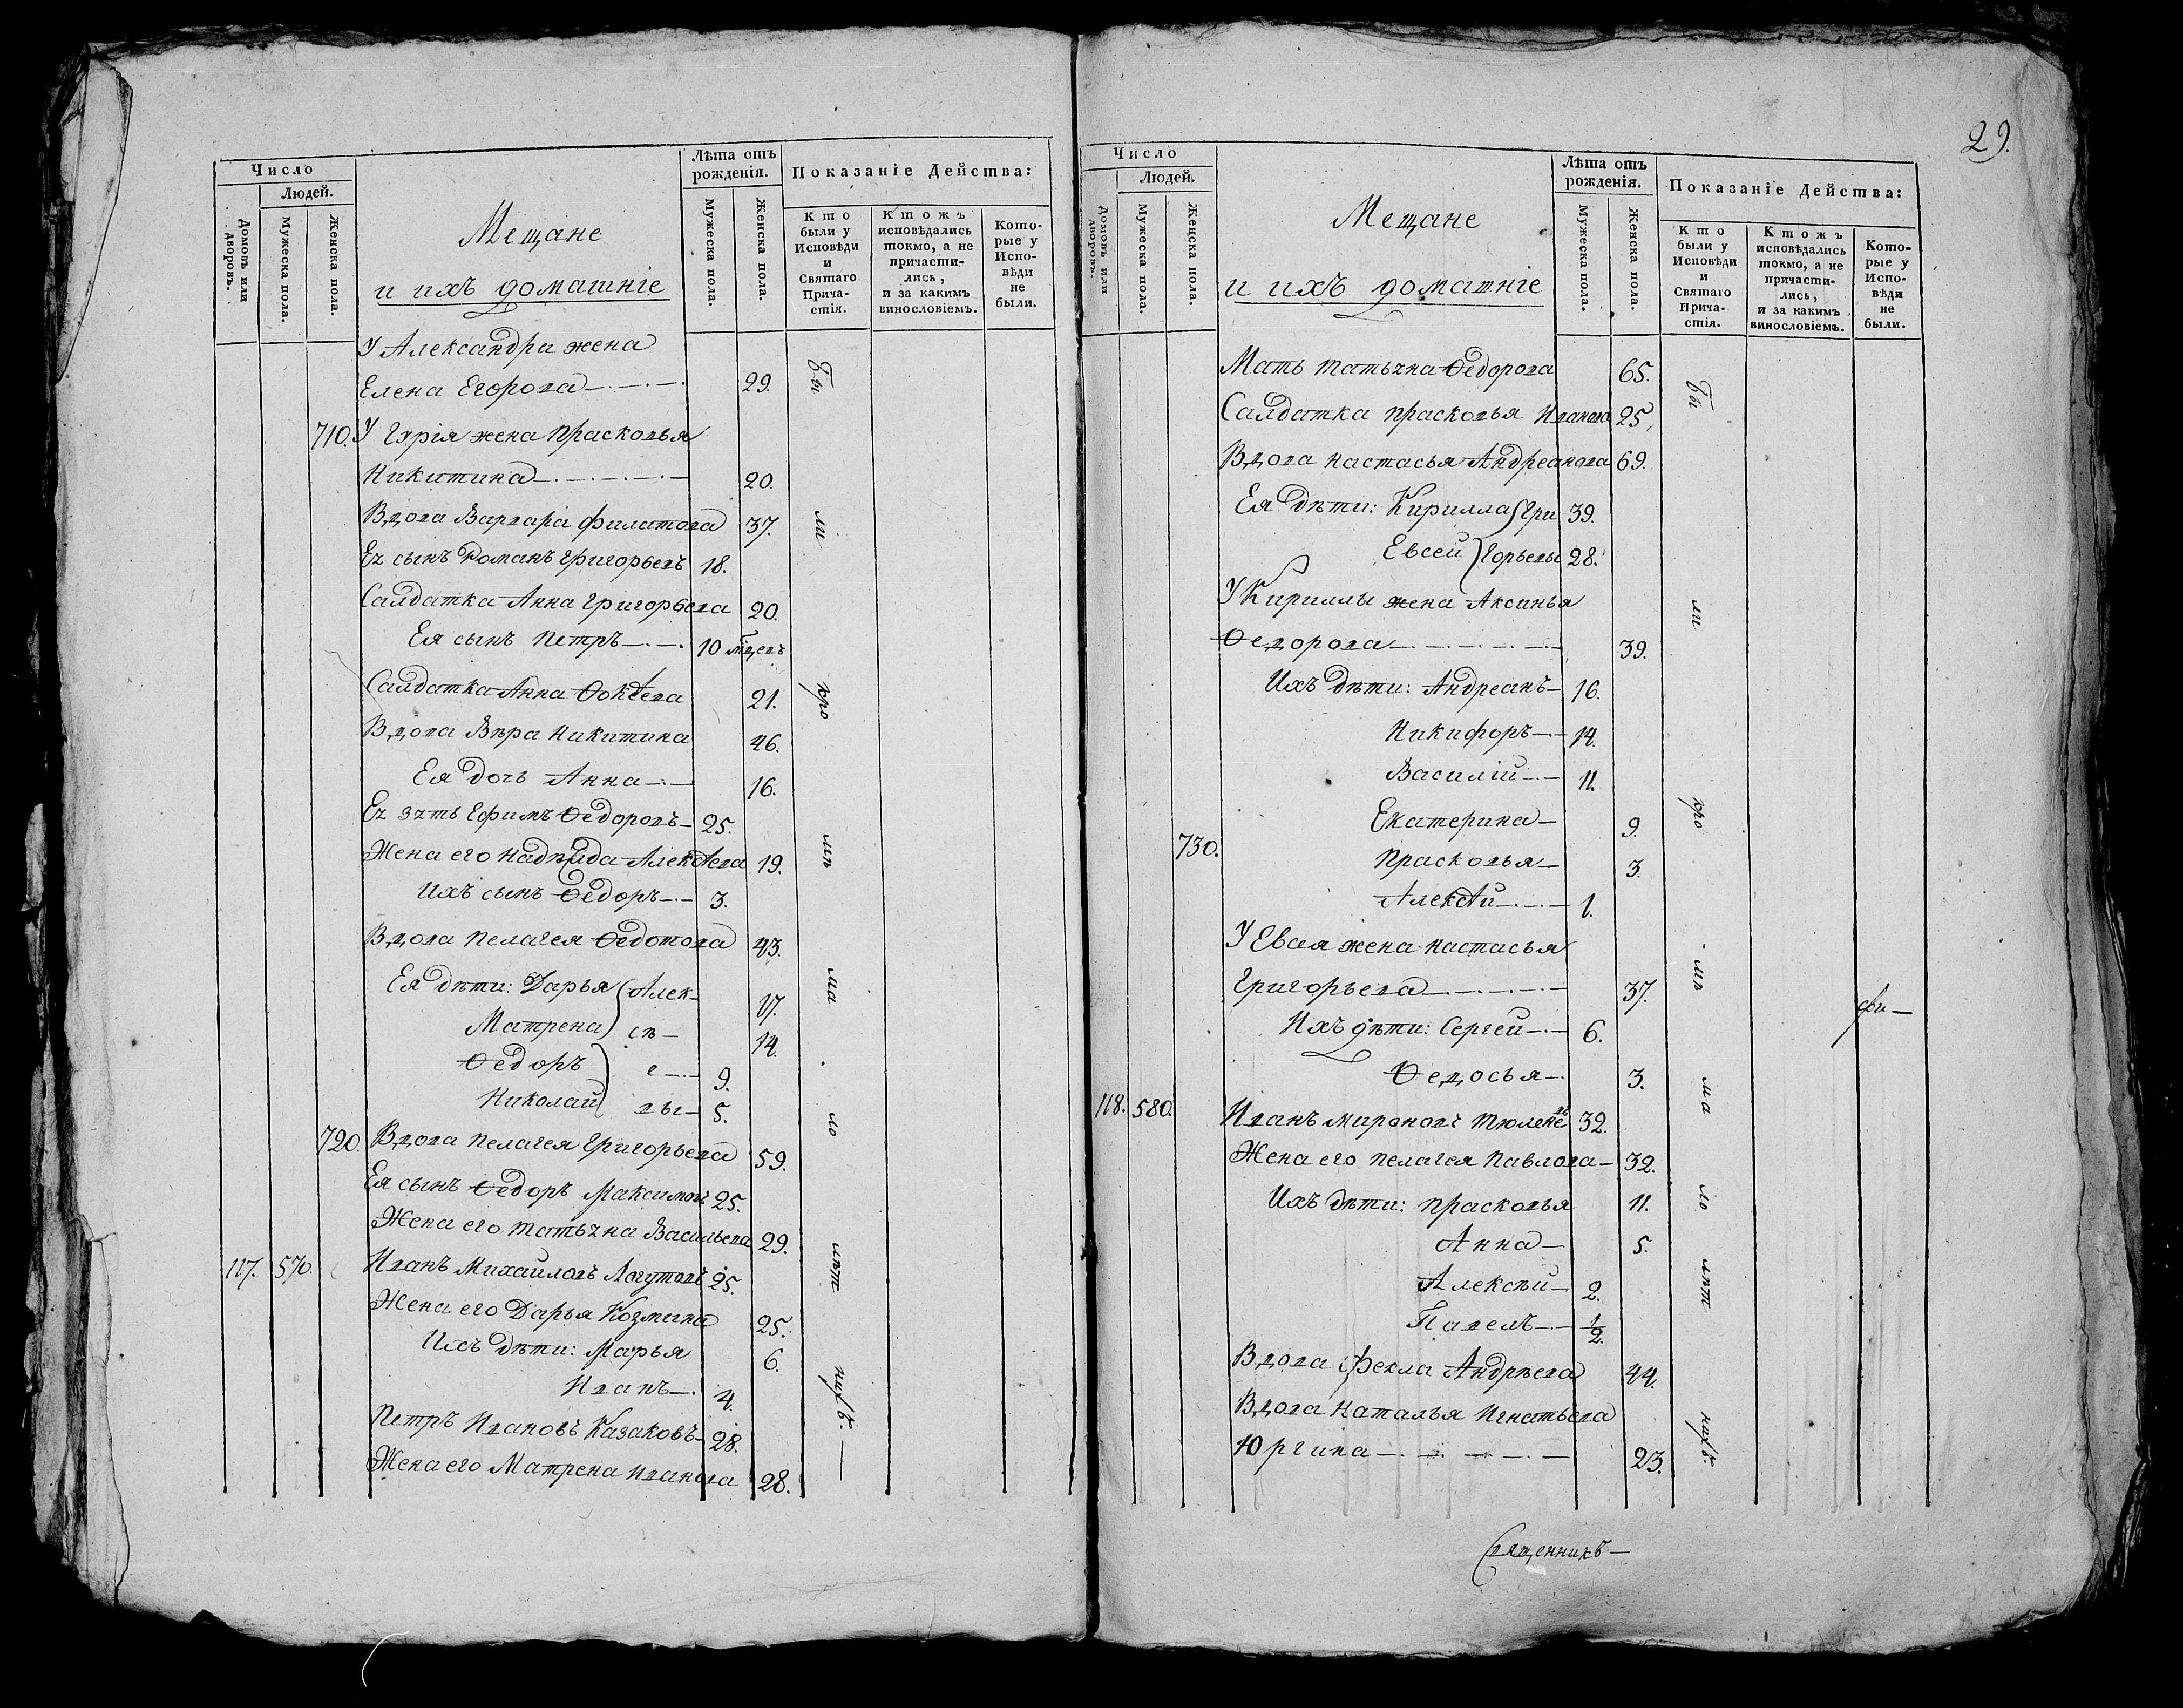 Число
Людей.
Домовъ или дворовъ.
Мужеска пола.
Женска пола.
Мещане
и ихъ домашніе
Лѣта отъ рожденія.
Мужеска пола.
Женска пола.
Показаніе Действа:
Кто были у Исповѣди и Святаго Причастія.
Ктожъ исповѣдались токмо, а не причастились, и за какимъ винословіемъ.
Которые у Исповѣди не были.
У Александра жена
Елена Егорова 29.
710. У Гурія жена Прасковья
Никитина 20.
Вдова Варвара Филатова 37.
Ея сынъ Романъ Григорьевъ 18.
Салдатка Анна Григорьева 20.
Ея сынъ Петръ 10 мцевъ
Салдатка Анна Фокѣева 21.
Вдова Вѣра Никитина 46.
Ея дочь Анна 16.
Ея зять Ефимъ Ѳедоровъ 25.
Жена его Надѣжда Алексѣева 19.
Ихъ сынъ Ѳедоръ 3.
Вдова Пелагея Ѳедотова 43.
Ея дѣти: Дарья Алек- 17.
Матрена сѣ- 14.
Ѳедоръ е- 9.
Николай вы 5.
720. Вдова Пелагея Григорьева 59.
Ея сынъ Ѳедоръ Максимовъ 25.
Жена его Татьяна Васильева 29.
117. 570. Иванъ Михайловъ Логутовъ 25.
Жена его Дарья Козмина 25.
Ихъ дѣти: Марья 6.
Иванъ 4.
Петръ Ивановъ Казаковъ 28.
Жена его Матрена Иванова 28.
Бы
ли
кро
мѣ
ма
ло
лѣт
нихъ.
29.
Число
Людей.
Домовъ или дворовъ.
Мужеска пола.
Женска пола.
Мещане
и ихъ домашніе
Лѣта отъ рожденія.
Мужеска пола.
Женска пола.
Показаніе Действа:
Кто были у Исповѣди и Святаго Причастія.
Ктожъ исповѣдались токмо, а не причастились, и за какимъ винословіемъ.
Которые у Исповѣди не были.
Мать Татьяна Ѳедорова 65.
Салдатка Прасковья Иванова 25.
Вдова Настасья Андреанова 69.
Ея дѣти: Кирилла Гри 39.
Евсей горьевы 28.
У Кириллы жена Аксинья
Ѳедорова 39.
Ихъ дѣти: Андреанъ 16.
Никифоръ 14.
Василій 11.
Екатерина 9.
730. Прасковья 3.
Алексѣй 1.
У Евсея жена Настасья
Григорьева 37.
Ихъ дѣти: Сергей 6.
Ѳедосья 3.
118. 580. Иванъ Мироновъ Тюленевъ 32.
Жена его Пелагея Павлова 32.
Ихъ дѣти: Прасковья 11.
Анна 5.
Алексѣй 2.
Павелъ 1/2.
Вдова Фекла Андрѣева 44.
Вдова Наталья Игнатьева
Юргина 23.
Бы
ли
кро
мѣ
ма
ло
лѣт
нихъ.
Священникъ